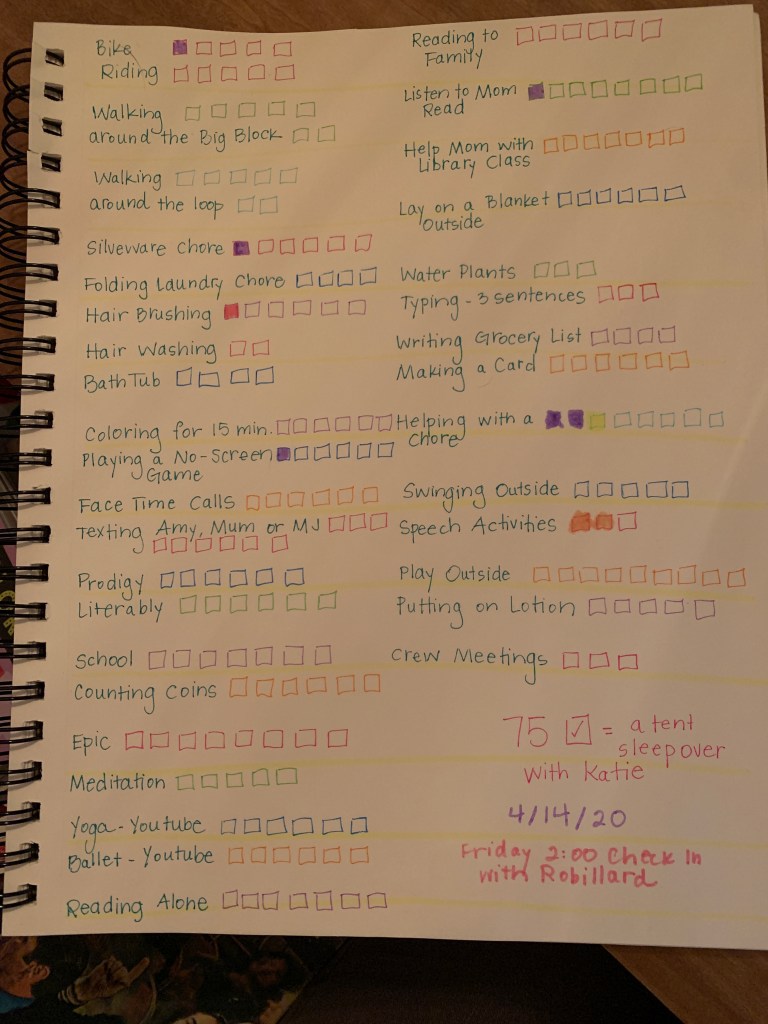 Bike
Riding
Walking
around the Big Block
Walking
around the loop
Silverware Chore
Folding Laundry Chore
Hair Brushing
Hair Washing
Bath Tub
Coloring for 15 min.
Playing a No-Screen
Game
Face Time Calls
Texting Amy, Mum or MJ
Prodigy
Literably
School
Counting Coins
Epic
Meditation
Yoga - Youtube
Ballet - Youtube
Reading Alone
Reading to
Family
Listen to Mom
Read
Help Mom with
Library Class
Lay on a Blanket
Outside
Water Plants
Typing - 3 sentences
Writing Grocery List
Making a Card
Helping with a
Chore
Swinging Outside
Speech Activities
Play Outside
Putting on Lotion
Crew Meetings
75 ☑ = a tent
sleepover
with Katie
4/14/20
Friday 2:00 Check In
with Robillard